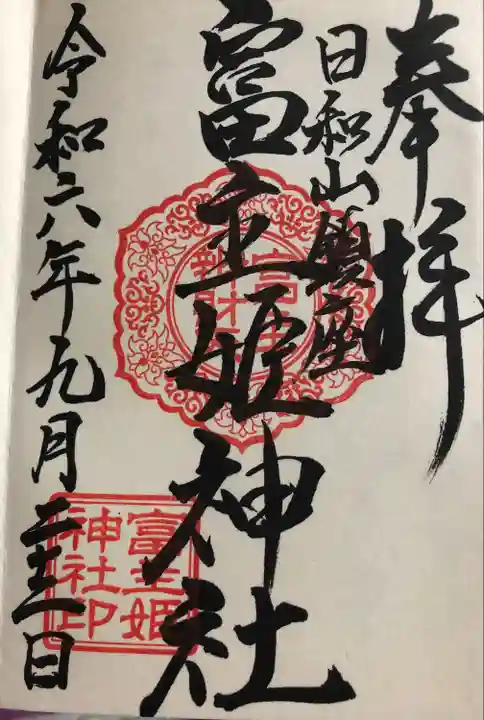 奉拝
日和山鎮座
富主姫神社
令和六年九月二十三日
富主姫
神社印